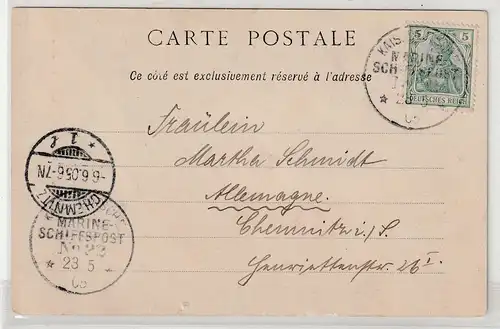 CARTE POSTALE
Ce côté est exclusivement réservé à l'adresse
KAIS.
MARINE-
SCHIFFSPOST
23 5
05
5 5
DEUTSCHES REICH
Fräulein
Martha Schmidt
Allemagne.
Chemnitz i/S.
Henriettenstr. 26 I
* 1 *
-6.6.05.6-7N
CHEMNITZ
MARINE-
SCHIFFSPOST
No 22
* 23 5 *
05